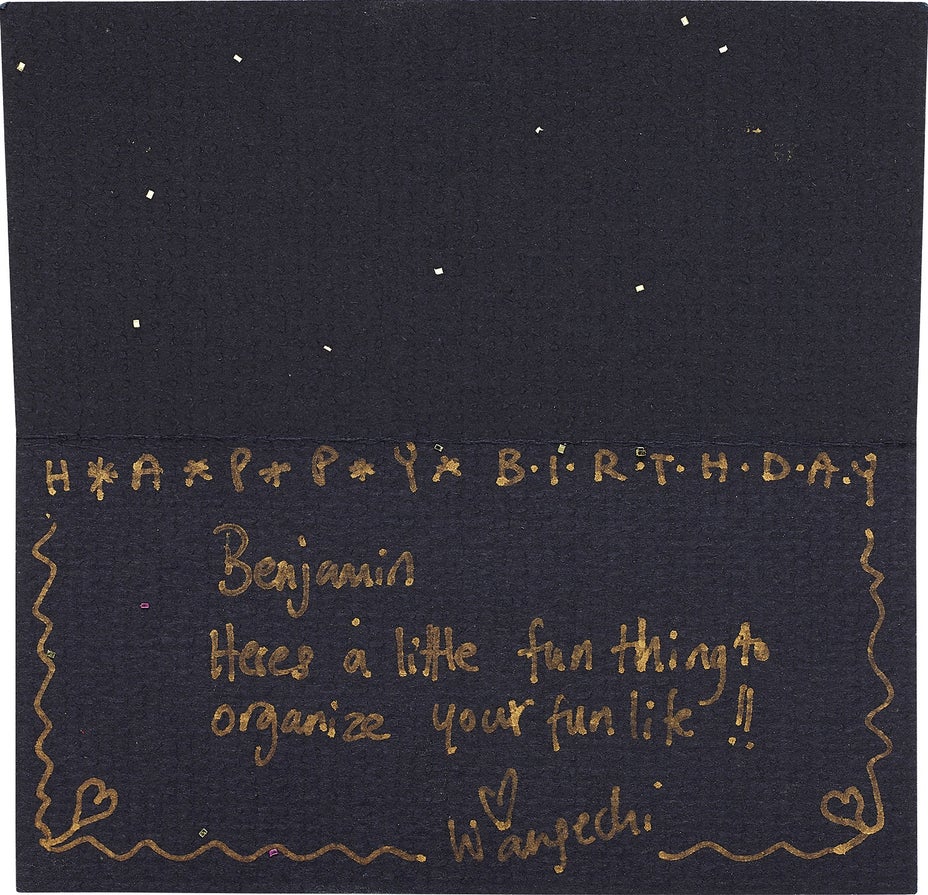 H*A*P*P*Y* B·I·R·T·H·D·A·Y
Benjamin
Heres a little fun thing to
organize your fun life !!
♡
Wangechi